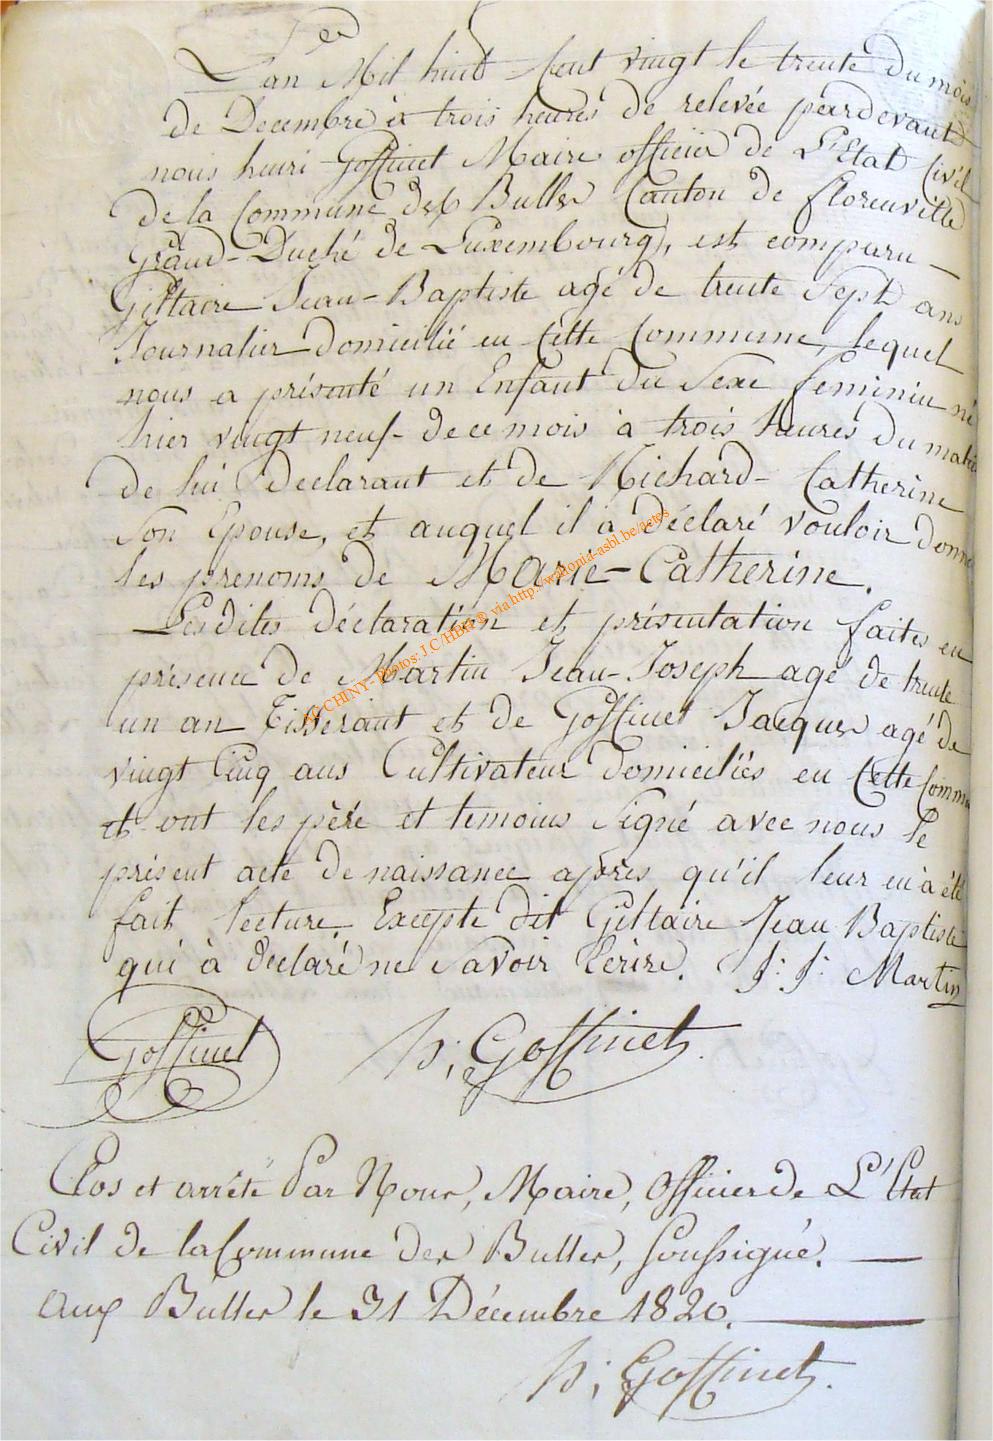 L'an Mil huit Cent vingt le trente du mois
de Decembre à trois heures de relevée pardevant
nous henri Goffinet Maire officier de L'Etat Civil
de la Commune des Bulles Canton de florenville
Grand-Duché de Luxembourg, est comparu
Giltaire Jean-Baptiste agé de trente Sept ans
Journalier Domicilié en Cette Commune, lequel
nous a présenté un Enfant du Sexe feminin né
hier vingt neuf de ce mois à trois heures du matin
de lui Declarant et de Richard Catherine
Son Epouse, et auquel il a Déclaré vouloir donner
les prenoms de Marie-Catherine.
Lesdites déclaration et présentation faites en
présence de Martin Jean-Joseph agé de trente
un an Tisserant et de Goffinet Jacques agé de
vingt Cinq ans Cultivateur domiciliés en Cette Commune
et ont les père et temoins Signé avec nous le
présent acte de naissance après qu'il leur en a été
fait lecture, Excepte dit Giltaire Jean Baptiste
qui à déclaré ne Savoir Ecrire. J: J: Martin
Goffinet h; Goffinet
Clos et arrêté Par Nous, Maire, Officier de L'Etat
Civil de la Commune des Bulles, Soussigné.
Aux Bulles le 31 Décembre 1820.
h; Goffinet
CHINY - Photos: J.C/HBH © via http://wallonia-asbl.be/actes